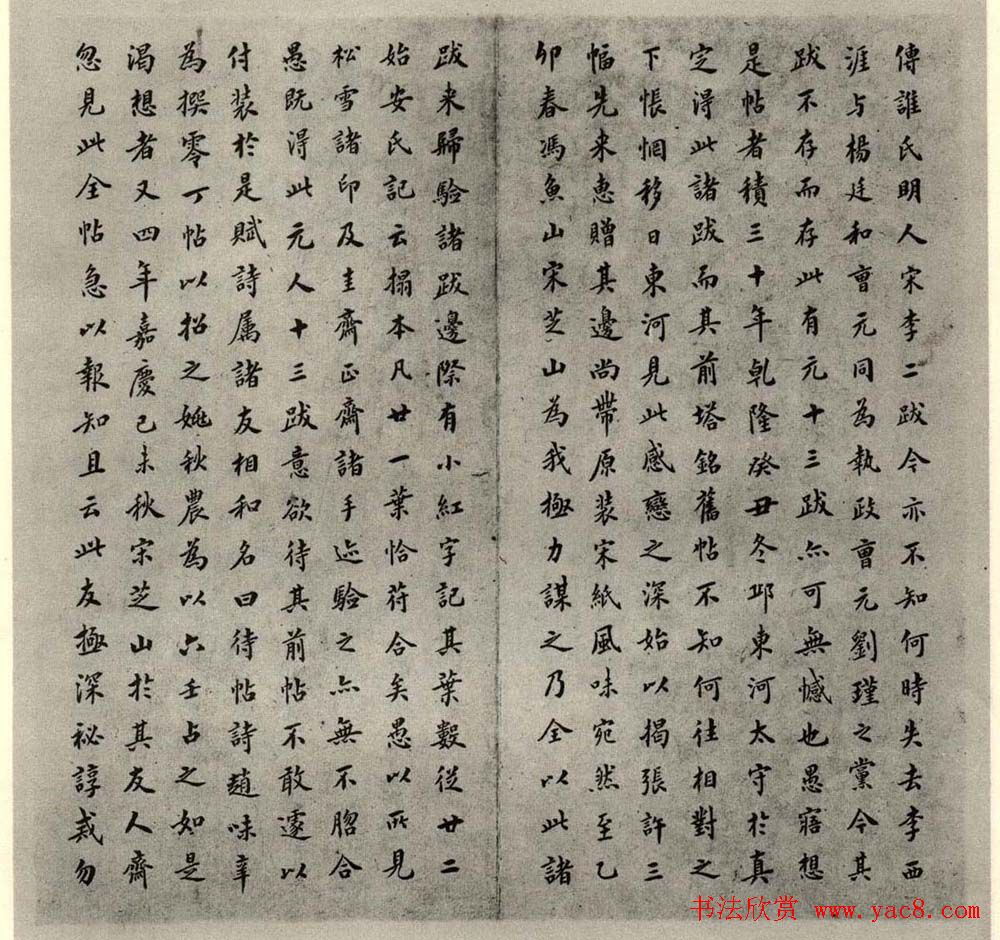 傳誰氏明人宋李二跋今亦不知何時失去李西
涯与楊廷和曺元同為執政曺元劉瑾之黨今其
跋不存而存此有元十三跋亦可無憾也愚寤想
是帖者積三十年乹隆癸丑冬邛東河太守於真
定得此諸跋而其前塔銘舊帖不知何往相對之
下悵惘移日東河見此感戀之深始以揭張許三
幅先来惠贈其邊尚帶原装宋紙風味宛然至乙
卯春馮魚山宋芝山為我極力謀之乃全以此諸
跋来歸驗諸跋邊際有小紅字記其葉數從廿二
始安氏記云搨本凡廿一葉恰苻合矣愚以所見
松雪諸印及圭齋正齋諸手迹驗之亦無不脗合
愚既得此元人十三跋意欲待其前帖不敢遽以
付装於是賦詩属諸友相和名曰待帖詩趙味辛
為撰零丁帖以招之姚秋農為以六壬占之如是
渴想者又四年嘉慶己未秋宋芝山於其友人齋
忽見此全帖急以報知且云此友極深祕諄戒勿
书法欣赏 www.yac8.com